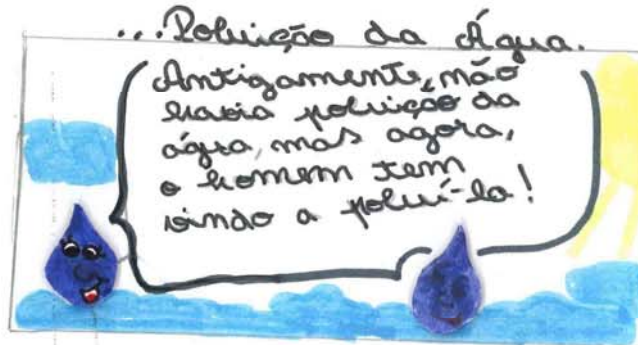 ...Poluição da Água.
Antigamente, não
havia poluição da
água, mas agora,
o homem tem
vindo a poluí-la!